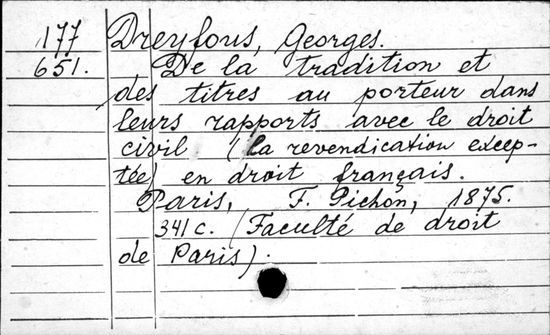 177 Dreyfous, Georges.
651. De la tradition et
des titres au porteur dans
leurs rapports avec le droit
civil (la revendication excep-
tée) en droit français.
Paris, F. Pichon, 1875.
341 c. (Faculté de droit
de Paris).